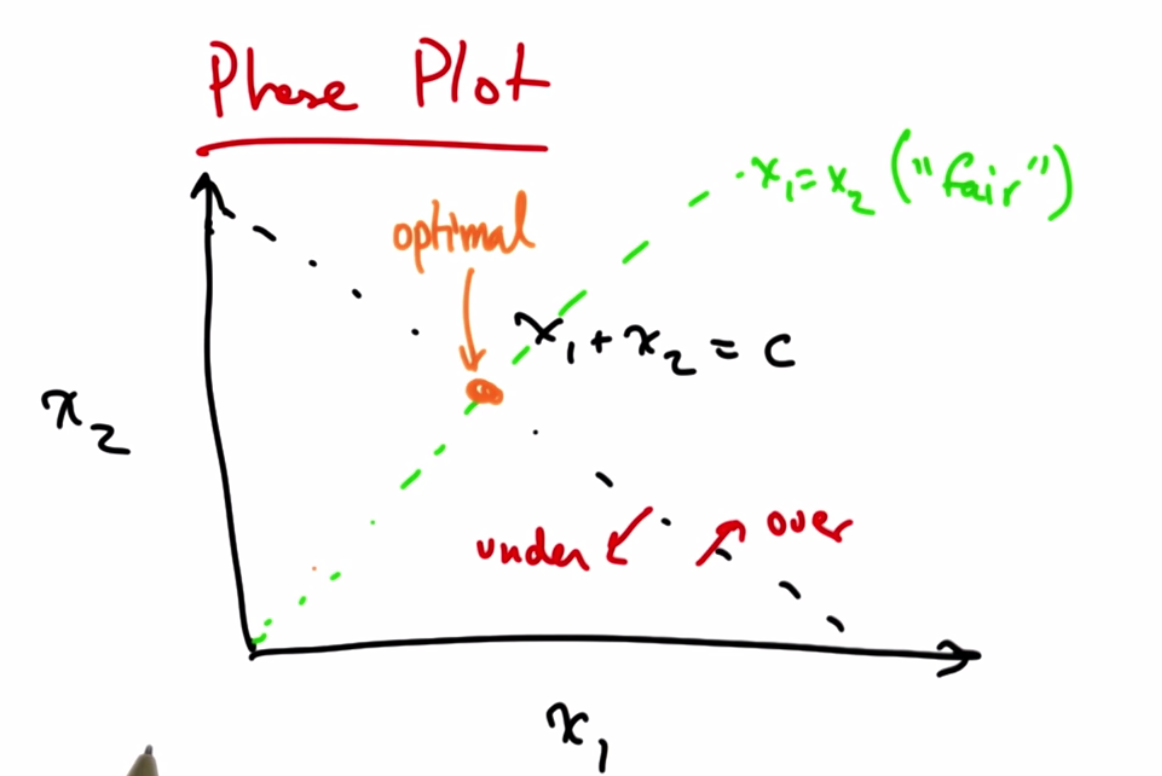 Phase Plot
x₁=x₂ ("fair")
optimal
x₁+x₂=C
x₂
under
over
x₁